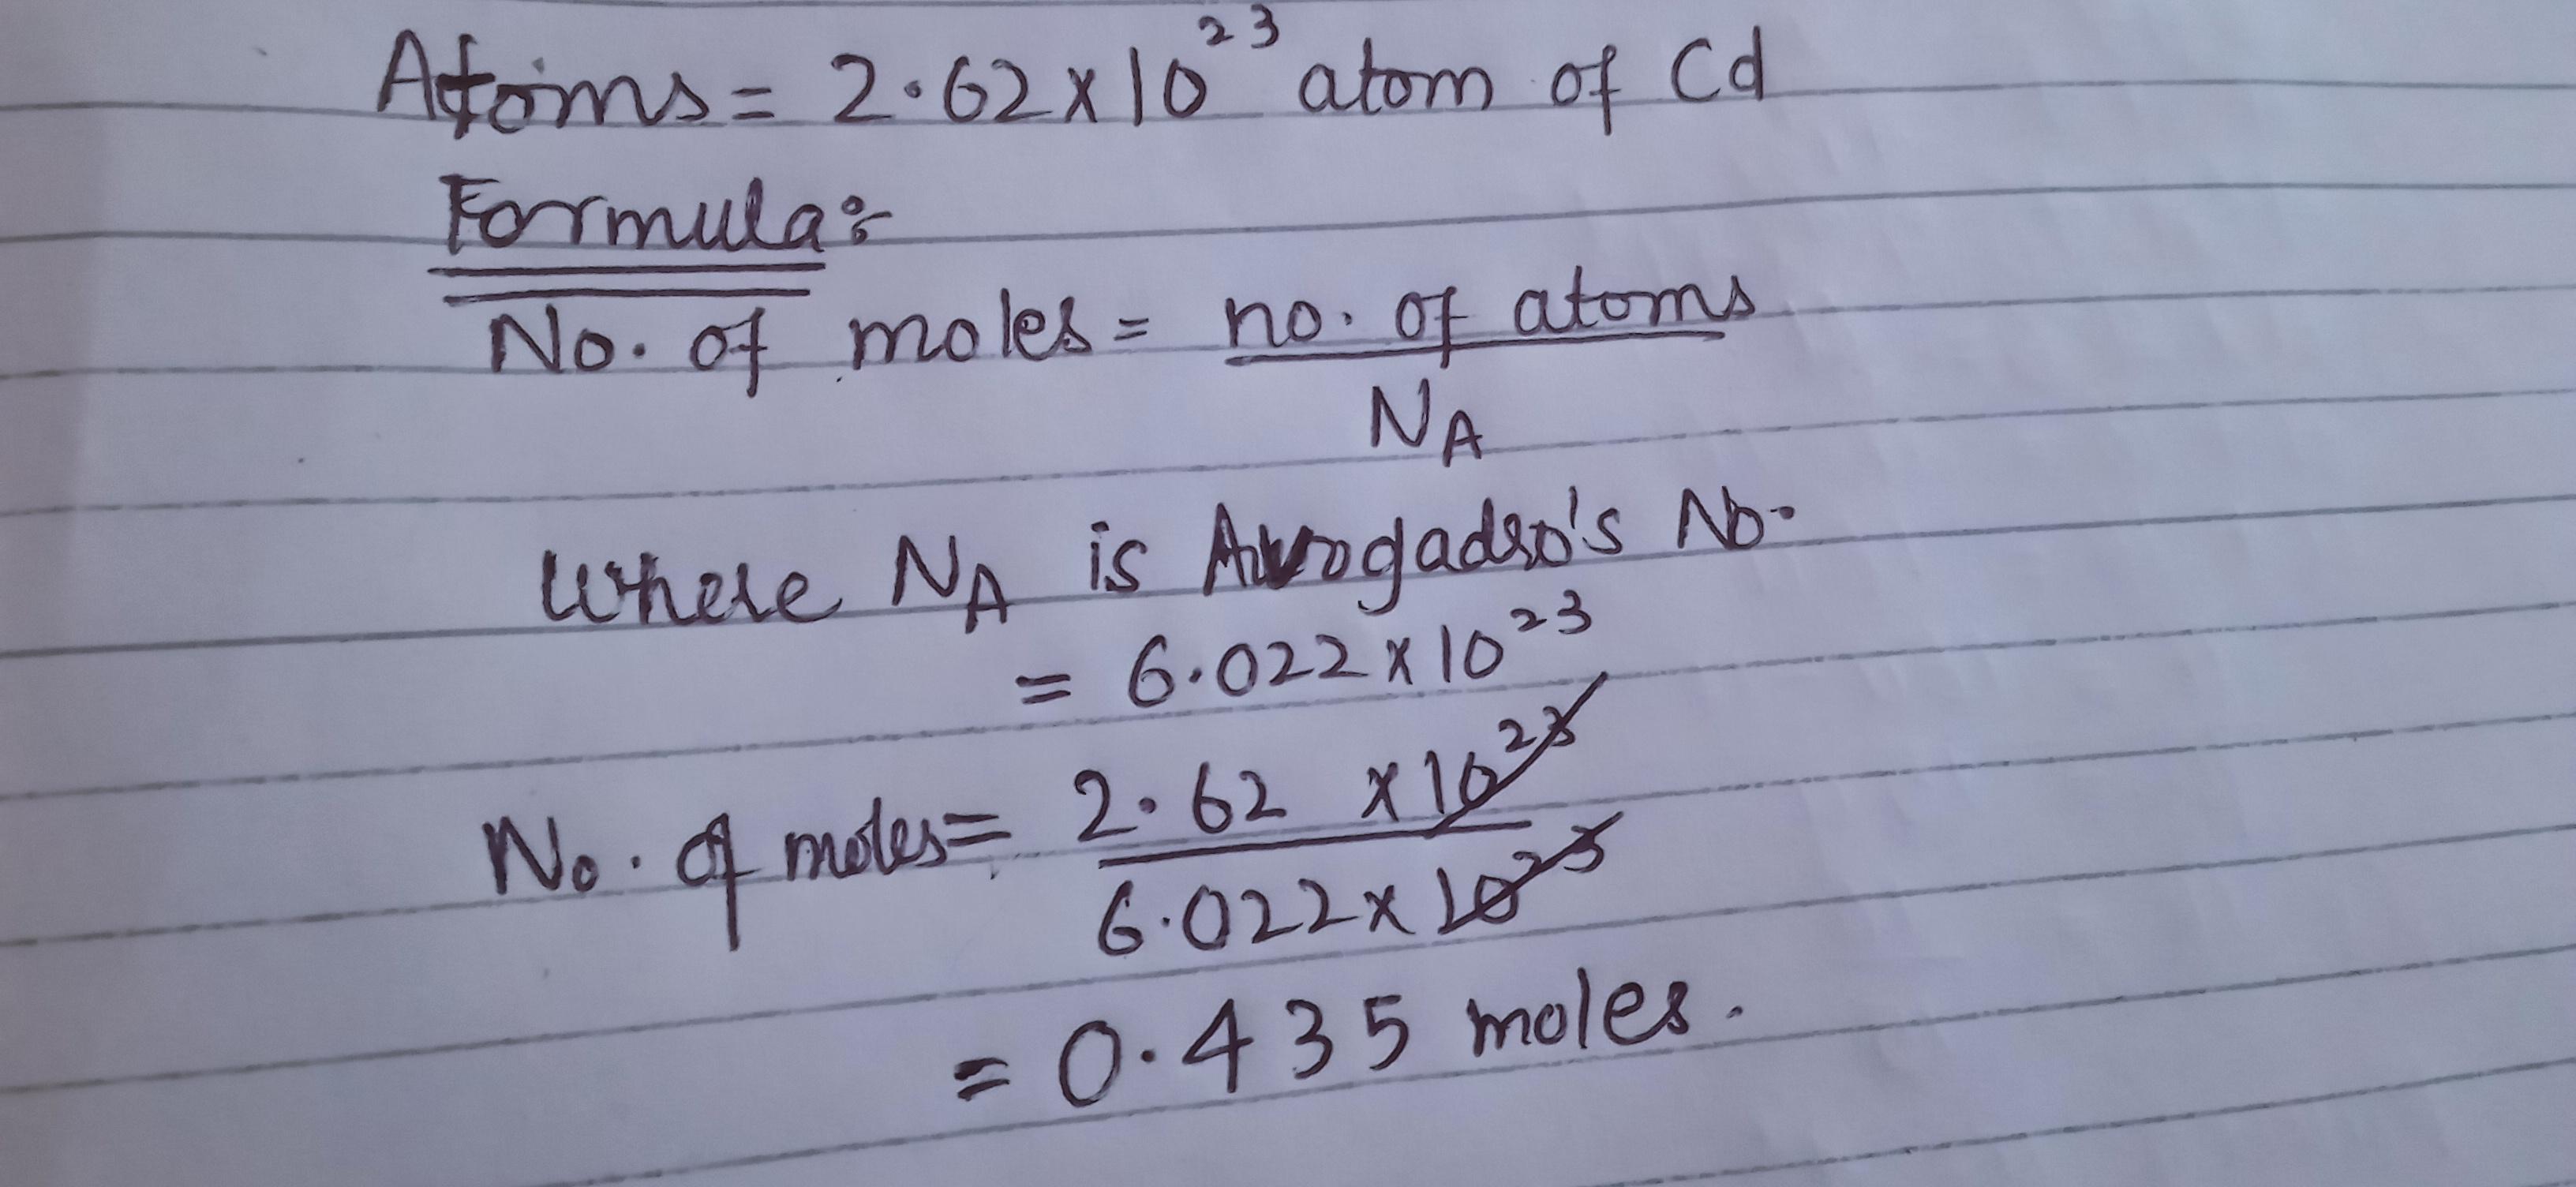 Atoms = 2.62 x 10²³ atom of Cd
Formula:-
No. of moles = no. of atoms
N_A
Where N_A is Avogadro's No.
= 6.022 x 10²³
No. of moles = 2.62 x 10²³
6.022 x 10²³
= 0.435 moles.